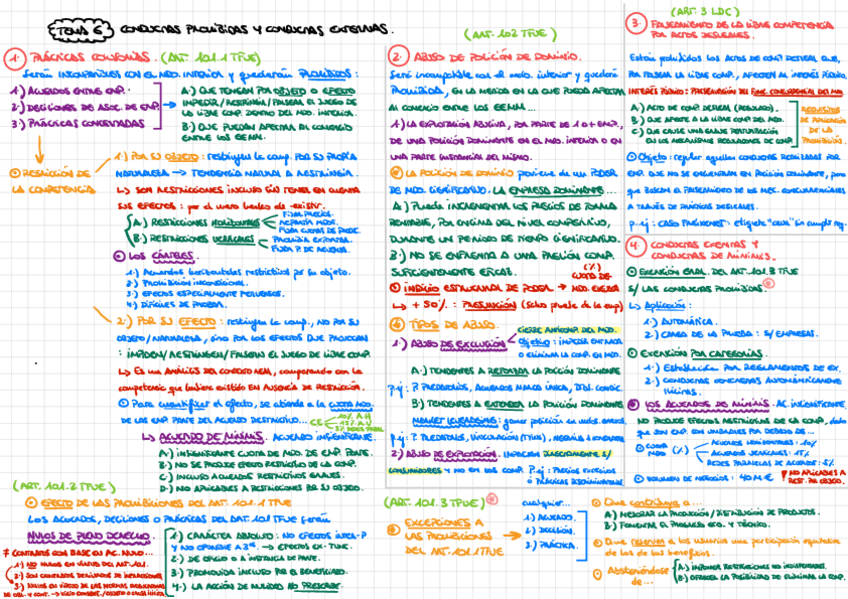 TEMA 6 CONDUCTAS PROHIBIDAS Y CONDUCTAS EXENTAS.
1. PRÁCTICAS COLUSORIAS. (ART. 101.1 TFUE)
Serán INCOMPATIBLES CON EL MDO. INTERIOR Y quedarán PROHIBIDOS:
1.) ACUERDOS ENTRE EMP.
2.) DECISIONES DE ASOC. DE EMP.
3.) PRÁCTICAS CONCERTADAS
A.) QUE TENGAN POR OBJETO O EFECTO
IMPEDIR / RESTRINGIR / FALSEAR EL JUEGO DE
LA LIBRE COMP. DENTRO DEL MDO. INTERIOR.
B.) QUE PUEDAN AFECTAR AL COMERCIO
ENTRE LOS EEMM.
RESTRICCIÓN DE
LA COMPETENCIA
1.) POR SU OBJETO: restringen la comp. POR SU PROPIA
NATURALEZA → TENDENCIA NATURAL A RESTRINGIR.
↳ SON RESTRICCIONES INCLUSO SIN TENER EN CUENTA
SUS EFECTOS: por el mero hecho de existir.
A.) RESTRICCIONES HORIZONTALES
FIJAR PRECIOS.
REPARTIR MDOS.
FIJAR CUOTAS DE PROD.
B.) RESTRICCIONES VERTICALES
PROHIBIR EXPORTAR.
FIJAR P. DE REVENTA.
LOS CÁRTELES.
1.) Acuerdos horizontales restrictivos por su objeto.
2.) PROHIBICIÓN INCONDICIONAL.
3.) EFECTOS ESPECIALMENTE PERVERSOS.
4.) DIFÍCILES DE PROBAR.
2.) POR SU EFECTO: restringen la comp., NO POR SU
OBJETO / NATURALEZA, SINO POR LOS EFECTOS QUE PROVOCAN
: IMPIDEN / RESTRINGEN / FALSEAN EL JUEGO DE LIBRE COMP.
↳ ES UN ANÁLISIS DEL CONTEXTO REAL, comparando con la
competencia que hubiera existido EN AUSENCIA DE RESTRICCIÓN.
Para cuantificar el efecto, se atiende a la CUOTA MDO.
DE LAS EMP PARTE DEL ACUERDO RESTRICTIVO...
10% A.H
15% A.V
5% REDES PARAL.
↳ ACUERDO DE MINIMIS. ACUERDO INSIGNIFICANTE.
A) INSIGNIFICANTE CUOTA DE MDO. DE EMP. PARTE.
B) NO SE PRODUCE EFECTO RESTRICTIVO DE LA COMP.
C) INCLUSO ACUERDOS RESTRICTIVOS GRAVES.
D) NO APLICABLES A RESTRICCIONES POR SU OBJETO.
(ART. 101.2 TFUE)
EFECTO DE LAS PROHIBICIONES DEL ART. 101.1 TFUE
LOS ACUERDOS, DECISIONES O PRÁCTICAS DEL ART. 101.1 TFUE serán
NULOS DE PLENO DERECHO.
≠ CONTRATOS CON BASE EN AC. NULO...
1.) NO NULOS EN VIRTUD DEL ART. 101.
1.) CARÁCTER ABSOLUTO: NO EFECTOS INTER-P
Y NO OPONIBLE A 3os → EFECTOS EX-TUNC.
2.) DE OFICIO O A INSTANCIA DE PARTE.
3.) PROMOVIDA INCLUSO POR EL BENEFICIARIO.
4.) LA ACCIÓN DE NULIDAD NO PRESCRIBE.
(ART. 102 TFUE)
2. ABUSO DE POSICIÓN DE DOMINIO.
Será incompatible con el mdo. interior y quedará
PROHIBIDA, EN LA MEDIDA EN LA QUE PUEDA AFECTAR
AL COMERCIO ENTRE LOS EEMM...
1.) LA EXPLOTACIÓN ABUSIVA, POR PARTE DE 1 o + EMP.,
DE UNA POSICIÓN DOMINANTE EN EL MDO. INTERIOR O EN
UNA PARTE SUSTANCIAL DEL MISMO.
LA POSICIÓN DE DOMINIO proviene de un PODER
DE MDO. SIGNIFICATIVO. LA EMPRESA DOMINANTE...
A.) Puede INCREMENTAR LOS PRECIOS DE FORMA
RENTABLE, POR ENCIMA DEL NIVEL COMPETITIVO,
DURANTE UN PERIODO DE TIEMPO SIGNIFICATIVO.
B.) NO SE ENFRENTA A UNA PRESIÓN COMP.
SUFICIENTEMENTE EFICAZ.
INDICIO ESTRUCTURAL DE PODER → (%) CUOTA DE MDO. ELEVADA
↳ + 50% : PRESUNCIÓN (salvo prueba de la emp)
TIPOS DE ABUSO.
1.) ABUSO DE EXCLUSIÓN
CIERRE ANTICOMP. DEL MDO.
Objetivo: IMPEDIR ENTRADA
O ELIMINA LA COMP. EN MDO.
A.) TENDENTES A REFORZAR LA POSICIÓN DOMINANTE
p.ej: P. PREDATORIOS, ACUERDOS MARCA ÚNICA, DTOS. CONDIC.
B.) TENDENTES A EXTENDER LA POSICIÓN DOMINANTE
MARKET LEVERAGING: ganar posición en mdos. anexos
p.ej: P. PREDATORIOS, VINCULACIÓN (TYING),
2.) ABUSO DE EXPLOTACIÓN. IMPACTAN DIRECTAMENTE S/
CONSUMIDORES Y NO EN LOS COMP. P.ej: PRECIOS EXCESIVOS
O PRÁCTICAS DISCRIMINATORIAS
(ART. 101.3 TFUE)
EXCEPCIONES A
LAS PROHIBICIONES
DEL ART. 101.1 TFUE
cualquier...
1.) ACUERDO.
2.) DECISIÓN.
3.) PRÁCTICA.
Que contribuya a...
A.) MEJORAR LA PRODUCCIÓN / DISTRIBUCIÓN DE PRODUCTOS.
B.) FOMENTAR EL PROGRESO ECO. Y TÉCNICO.
Que reserven a los usuarios una participación equitativa
de los de los beneficios.
Absteniéndose
de...
A.) IMPONER RESTRICCIONES NO INDISPENSABLES.
B.) OFRECER LA POSIBILIDAD DE ELIMINAR LA COMP.
(ART. 3 LDC)
3. FALSEAMIENTO DE LA LIBRE COMPETENCIA
POR ACTOS DESLEALES.
Están prohibidos LOS ACTOS DE COMP DESLEAL QUE,
POR FALSEAR LA LIBRE COMP., AFECTEN AL INTERÉS PÚBLICO.
INTERÉS PÚBLICO: PRESERVACIÓN DEL FUNC. CONCURRENCIAL DEL MDO.
A) ACTO DE COMP. DESLEAL (REGULADO).
B) QUE AFECTE A LA LIBRE COMP DEL MDO.
C) QUE CAUSE UNA GRAVE PERTURBACIÓN
EN LOS MECANISMOS REGULADORES DE COMP.
REQUISITOS
DE APLICACIÓN
DE LA
PROHIBICIÓN
Objeto: regular aquellas CONDUCTAS REALIZADAS POR
EMP. QUE NO SE ENCUENTRAN EN POSICIÓN DOMINANTE, pero
que BUSCAN EL FALSEAMIENTO DE LOS MEC. CONCURRENCIALES
A TRAVÉS DE PRÁCTICAS DESLEALES.
4. CONDUCTAS EXENTAS Y
CONDUCTAS DE MINIMIS.
EXENCIÓN GRAL. DEL ART. 101.3 TFUE
S/ LAS CONDUCTAS PROHIBIDAS.
↳ APLICACIÓN:
1.) AUTOMÁTICA.
2.) CARGA DE LA PRUEBA: S/ EMPRESAS.
EXENCIÓN POR CATEGORÍAS.
1.) Establecidas POR REGLAMENTOS DE EX.
2.) CONDUCTAS CONCRETAS AUTOMÁTICAMENTE
LÍCITAS.
LOS ACUERDOS DE MINIMIS. AC INSIGNIFICANTE.
NO PRODUCE EFECTOS RESTRICTIVOS DE LA COMP, dado
que SON EMP. CON UNIDADES POR DEBAJO DE...
CUOTA MDO. (%)
ACUERDOS HORIZONTALES: 10%
ACUERDOS VERTICALES: 15%
REDES PARALELAS DE ACUERDOS: 5%
VOLUMEN DE NEGOCIOS: 40 M €
! NO APLICABLES A
REST. POR OBJETO.